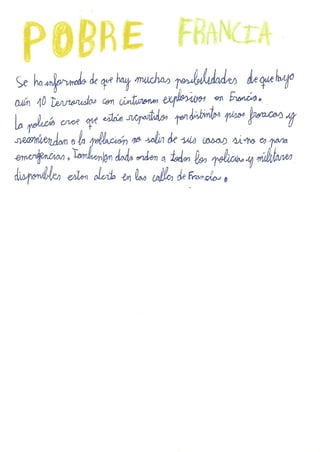 POBRE FRANCIA
Se ha informado de que hay muchas posibiledades de que haya
aún 10 Terroristas con cinturones explosivos en Francia.
La policia cree que están repartidos por distintos pisos francos y
recomiendan a la poblacion no salir de sus casas si no es para
emergencias. Tambien dado orden a todos los policias y militares
disponibles esten alerta en las calles de Francia.